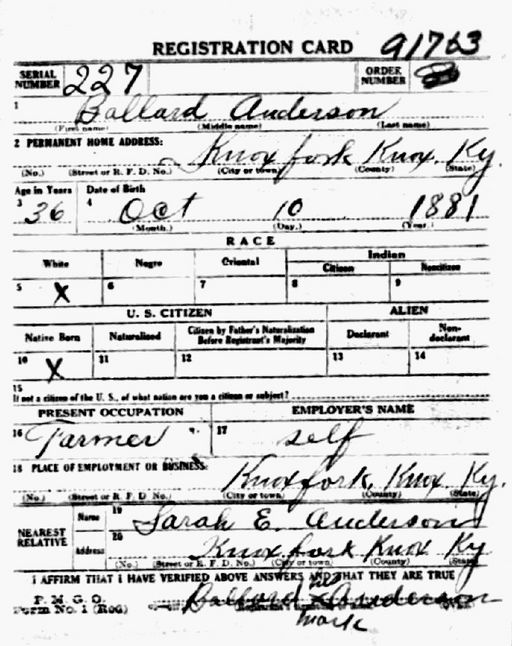 REGISTRATION CARD 91763
SERIAL NUMBER 227 ORDER NUMBER
1 Ballard Anderson
(First name) (Middle name) (Last name)
2 PERMANENT HOME ADDRESS:
Knox fork Knox Ky.
(No.) (Street or R. F. D. No.) (City or town) (County) (State)
Age in Years Date of Birth
3 36 4 Oct 10 1881
(Month.) (Day.) (Year.)
RACE
White Negro Oriental Indian
Citizen Noncitizen
5 X 6 7 8 9
U. S. CITIZEN ALIEN
Native Born Naturalized Citizen by Father's Naturalization Before Registrant's Majority Declarant Non-declarant
10 X 11 12 13 14
15
If not a citizen of the U. S., of what nation are you a citizen or subject?
PRESENT OCCUPATION EMPLOYER'S NAME
16 Farmer 17 self
18 PLACE OF EMPLOYMENT OR BUSINESS:
Knoxfork, Knox Ky.
(No.) (Street or R. F. D. No.) (City or town) (County) (State)
NEAREST RELATIVE Name 19 Sarah E. Anderson
Address 20 Knox fork Knox Ky
(No.) (Street or R. F. D. No.) (City or town) (County) (State)
I AFFIRM THAT I HAVE VERIFIED ABOVE ANSWERS AND THAT THEY ARE TRUE
P. M. G. O.
Form No. 1 (Red) Ballard his X Anderson
mark